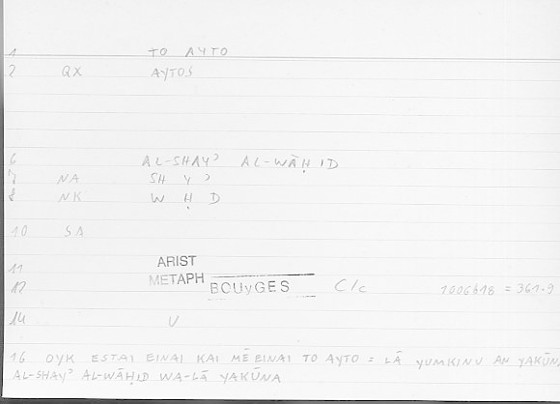 1 TO AYTO
2 QX AYTOS
6 AL-SHAYʾ AL-WĀḤID
7 NA SH Y ʾ
8 NK W Ḥ D
10 SA
11 ARIST
12 METAPH BOUyGES C/c 1006b18 = 361.9
14 V
16 OYK ESTAI EINAI KAI MĒ EINAI TO AYTO = LĀ YUMKINU AN YAKŪNA
AL-SHAYʾ AL-WĀḤID WA-LĀ YAKŪNA